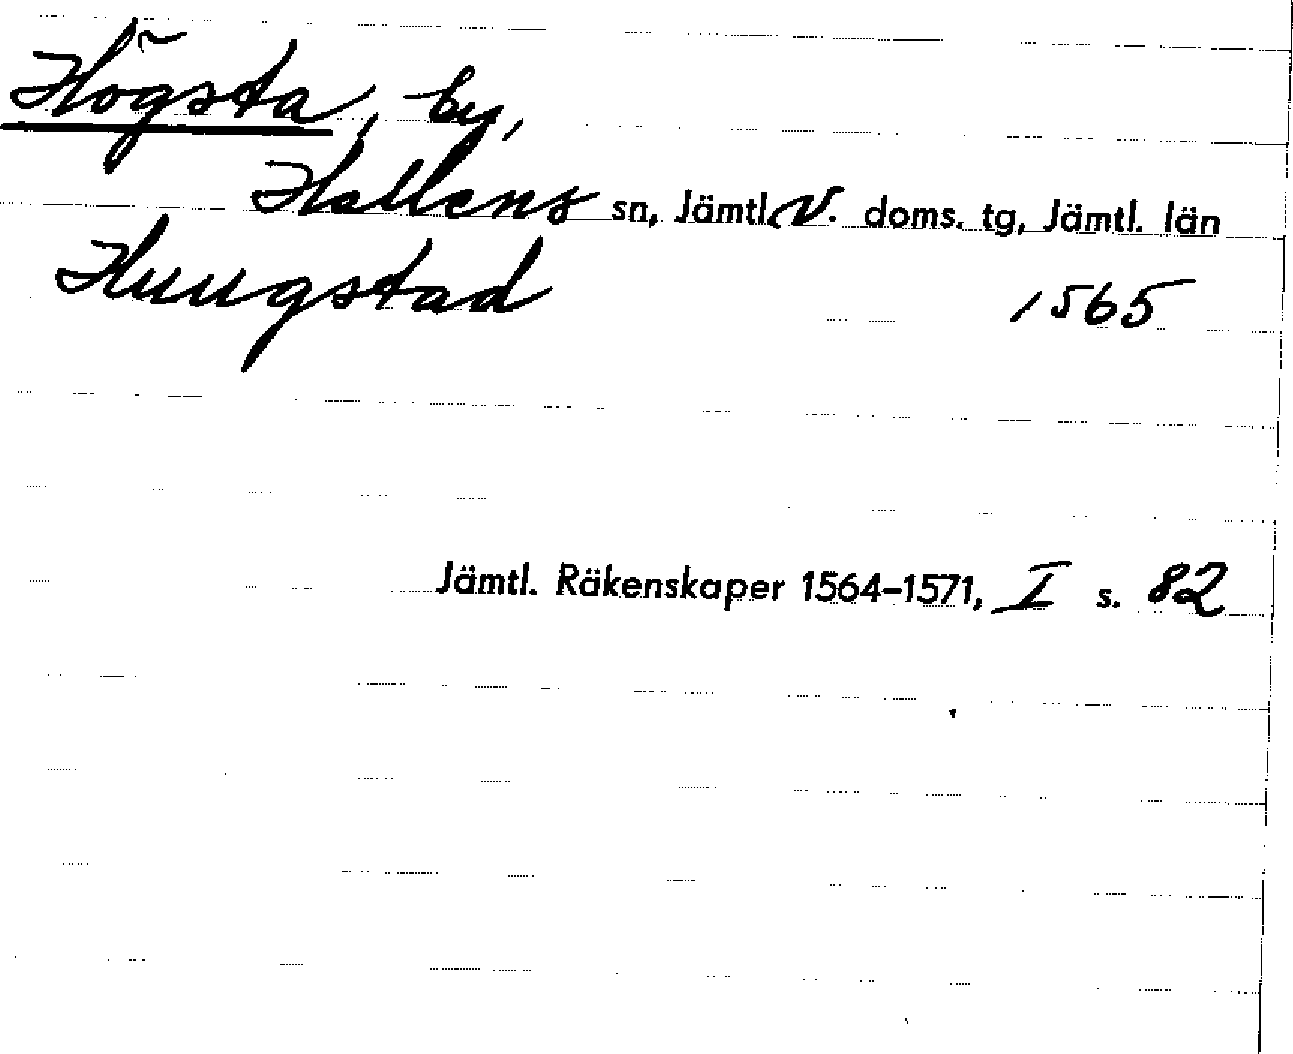 Högsta, by,
Hallens sn, Jämtl. V. doms. tg, Jämtl. län
Huugstad 1565
Jämtl. Räkenskaper 1564–1571, I s. 82